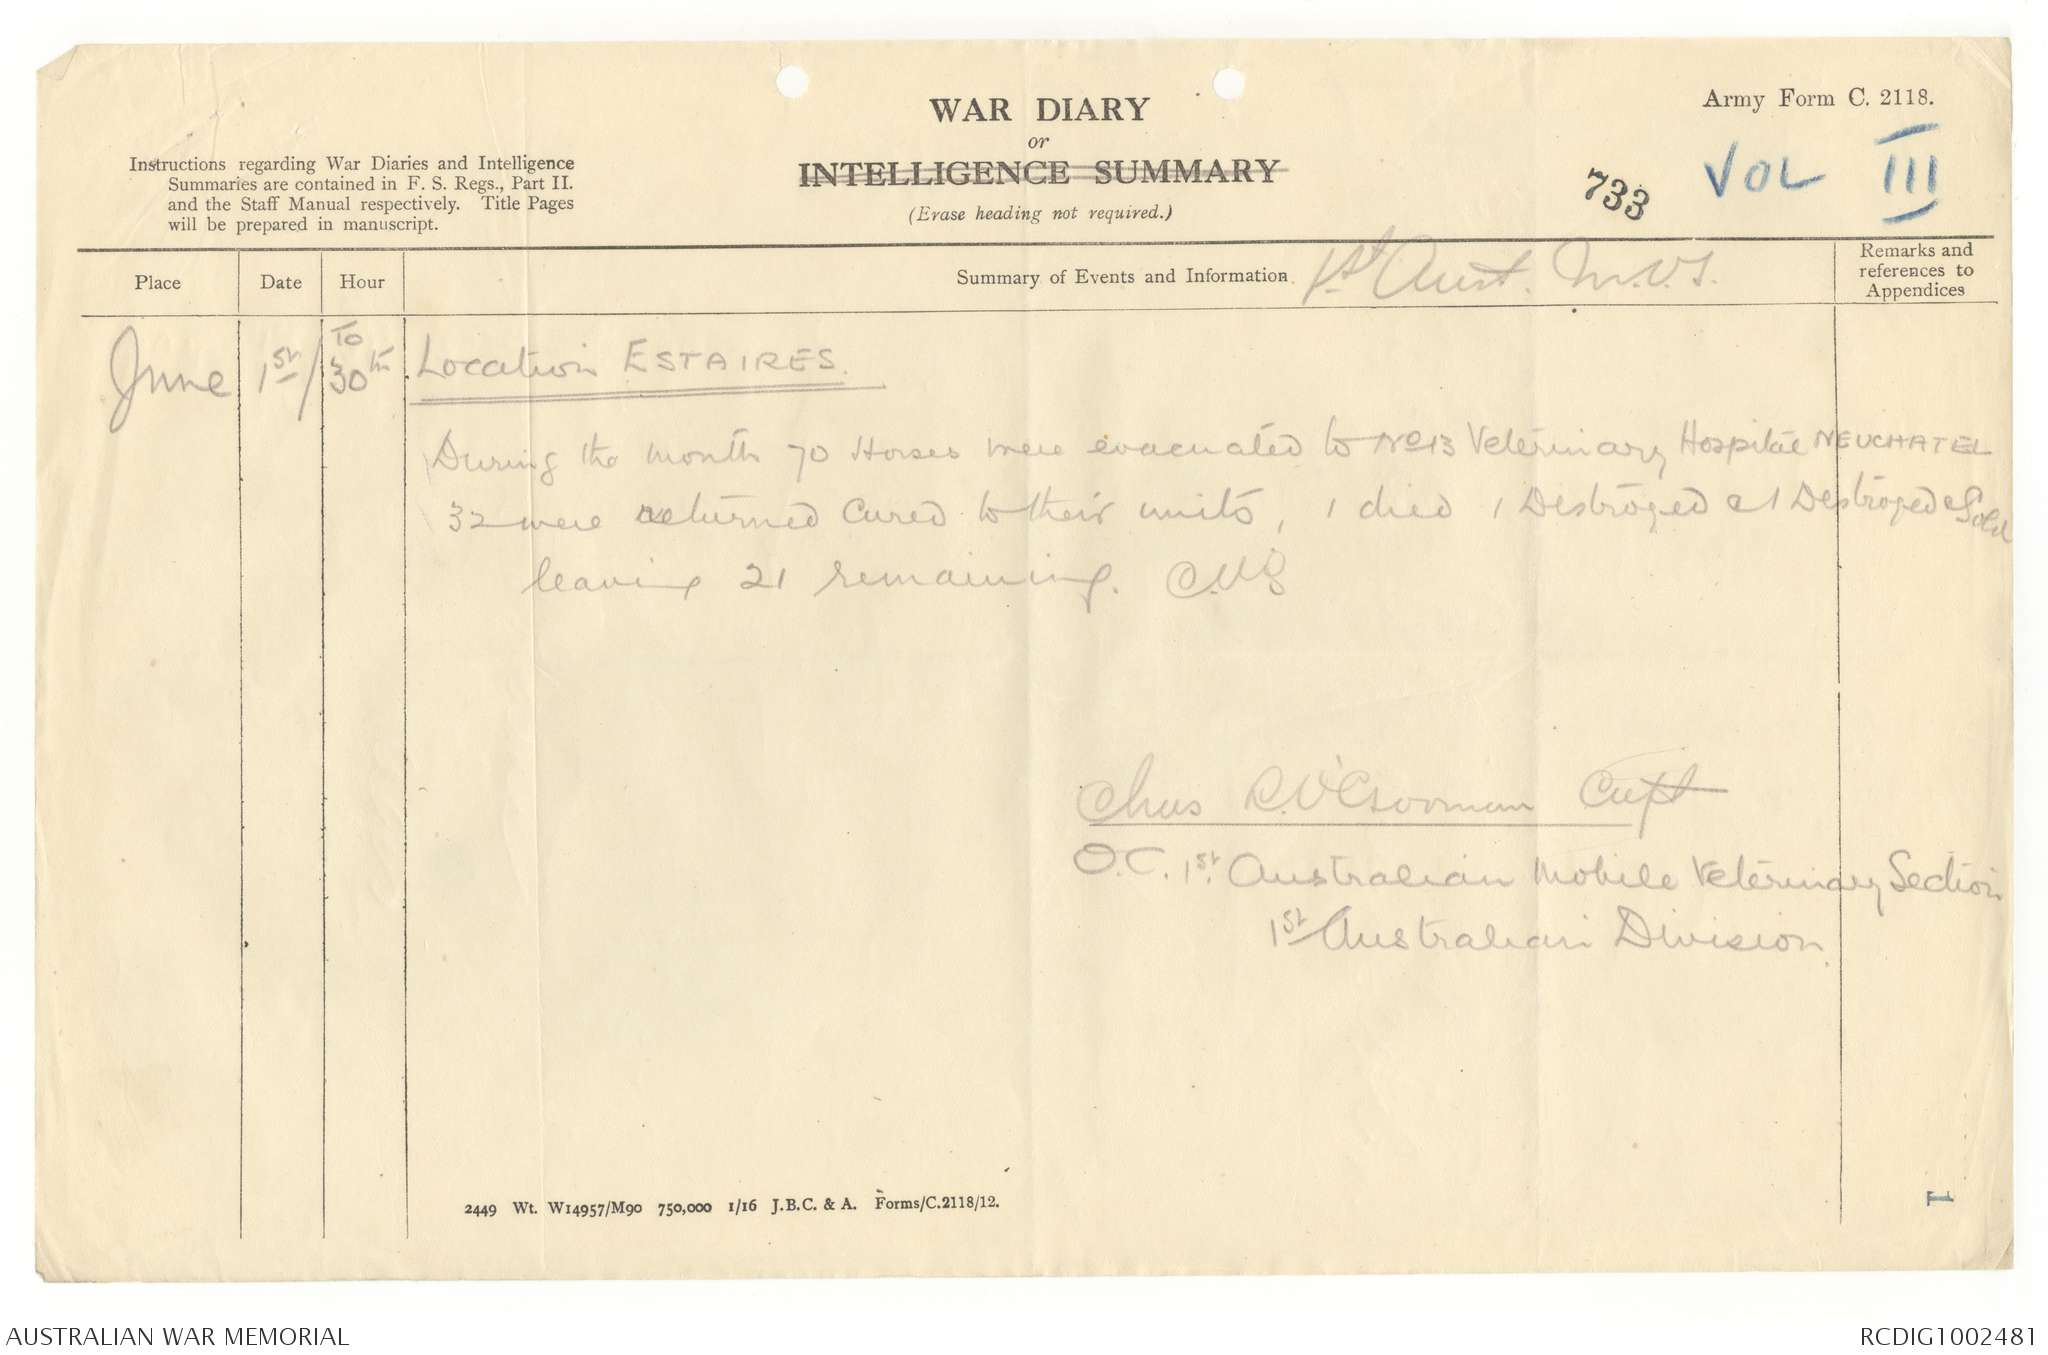 Army Form C. 2118.
WAR DIARY
or
INTELLIGENCE SUMMARY
(Erase heading not required.)
Instructions regarding War Diaries and Intelligence
Summaries are contained in F. S. Regs., Part II.
and the Staff Manual respectively. Title Pages
will be prepared in manuscript.
733
VOL III
Place
Date
Hour
Summary of Events and Information.
1st Aust. M.V.S.
Remarks and
references to
Appendices
June 1st / To 30th
Location ESTAIRES.
During the month 70 Horses were evacuated to No13 Veterinary Hospital NEUCHATEL
32 were returned cured to their units, 1 died 1 Destroyed & 1 Destroyed & Sold
leaving 21 remaining.
Chas Capt
O.C. 1st. Australian Mobile Veterinary Section
1st Australian Division.
2449 Wt. W14957/M90 750,000 1/16 J.B.C. & A. Forms/C.2118/12.
1
AUSTRALIAN WAR MEMORIAL
RCDIG1002481